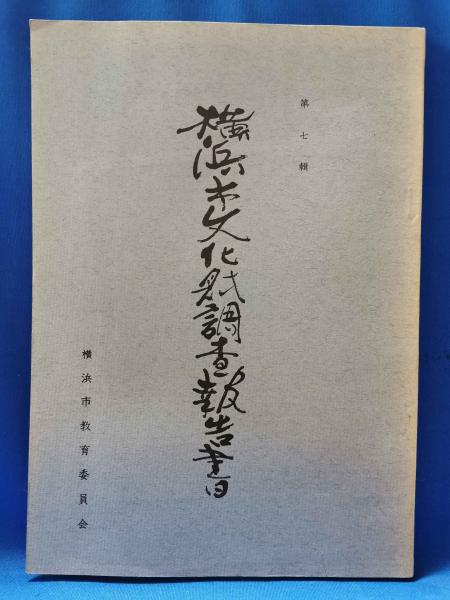 第七輯
横浜市文化財調査報告書
横浜市教育委員会